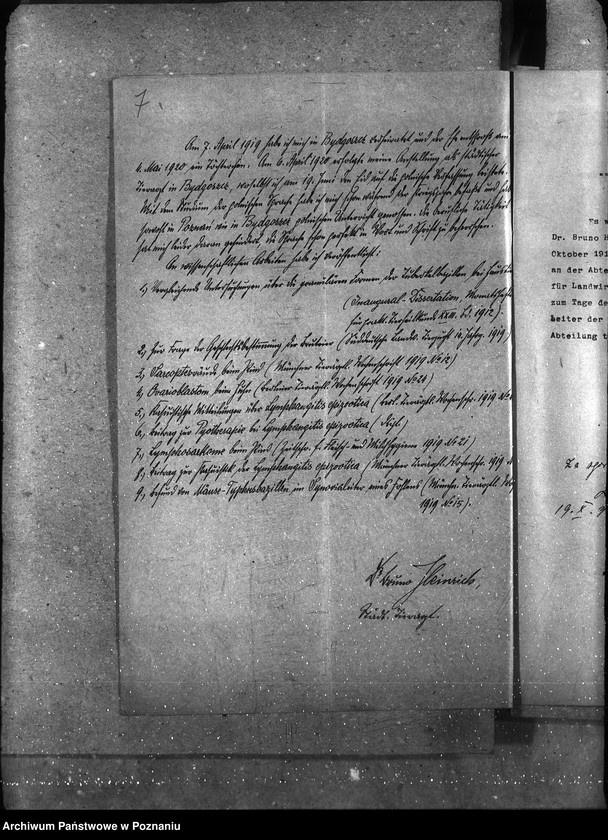 7.
Am 7. April 1919 habe ich mich in Bydgoszcz verheiratet und der Ehe entsproß am
4. Mai 1920 ein Töchterchen. Am 6. April 1920 erfolgte meine Anstellung als städtischer
Tierarzt in Bydgoszcz, woselbst ich am 19. Juni den Eid auf die polnische Verfassung leistete.
Mit dem Studium der polnischen Sprache habe ich mich schon während der
sowohl in Poznań wie in Bydgoszcz polnischen Unterricht genossen. Die berufliche Tätigkeit
hat mich leider daran gehindert, die Sprache schon perfekt in Wort und Schrift zu beherrschen.
An wissenschaftlichen Arbeiten habe ich veröffentlicht:
1) Vergleichende Untersuchungen über die granulären Formen der Tuberkelbazillen bei
(Inaugural-Dissertation, Monatshefte
für prakt. Tierheilkunde XXIII. Bd. 1912).
2) Zur Frage der der (Süddeutsche landw. Tierzucht 14. Jahrg. 1919)
3) Sarcoptesräude beim Rind (Münchner Tierärztl. Wochenschrift 1919 № 12)
4) Ovarioblastom beim Huhn (Berliner Tierärztl. Wochenschrift 1919 № 24)
5) Kasuistische Mitteilungen über Lymphangitis epizootica (Berl. Tierärztl. Wochenschr. 1919 №
6) Beitrag zur Pyotherapie bei Lymphangitis epizootica
7) Lymphosarkome beim Rind (Zeitschr. f. Fleisch- und Milchhygiene 1919 № 21)
8) Beitrag zur Kasuistik der Lymphangitis epizootica (Münchner Tierärztl. Wochenschr. 1919 №
9) Befund von Mäuse-Typhusbazillen im Synovialeiter eines Fohlens (Münchn. Tierärztl.
1919 № 15).
Dr Bruno Heinrich,
Städt. Tierarzt.
Es w
Dr. Bruno H
Oktober 191
an der Abte
für Landwir
zum Tage de
Leiter der
Abteilung t
Za
19. X.
Archiwum Państwowe w Poznaniu